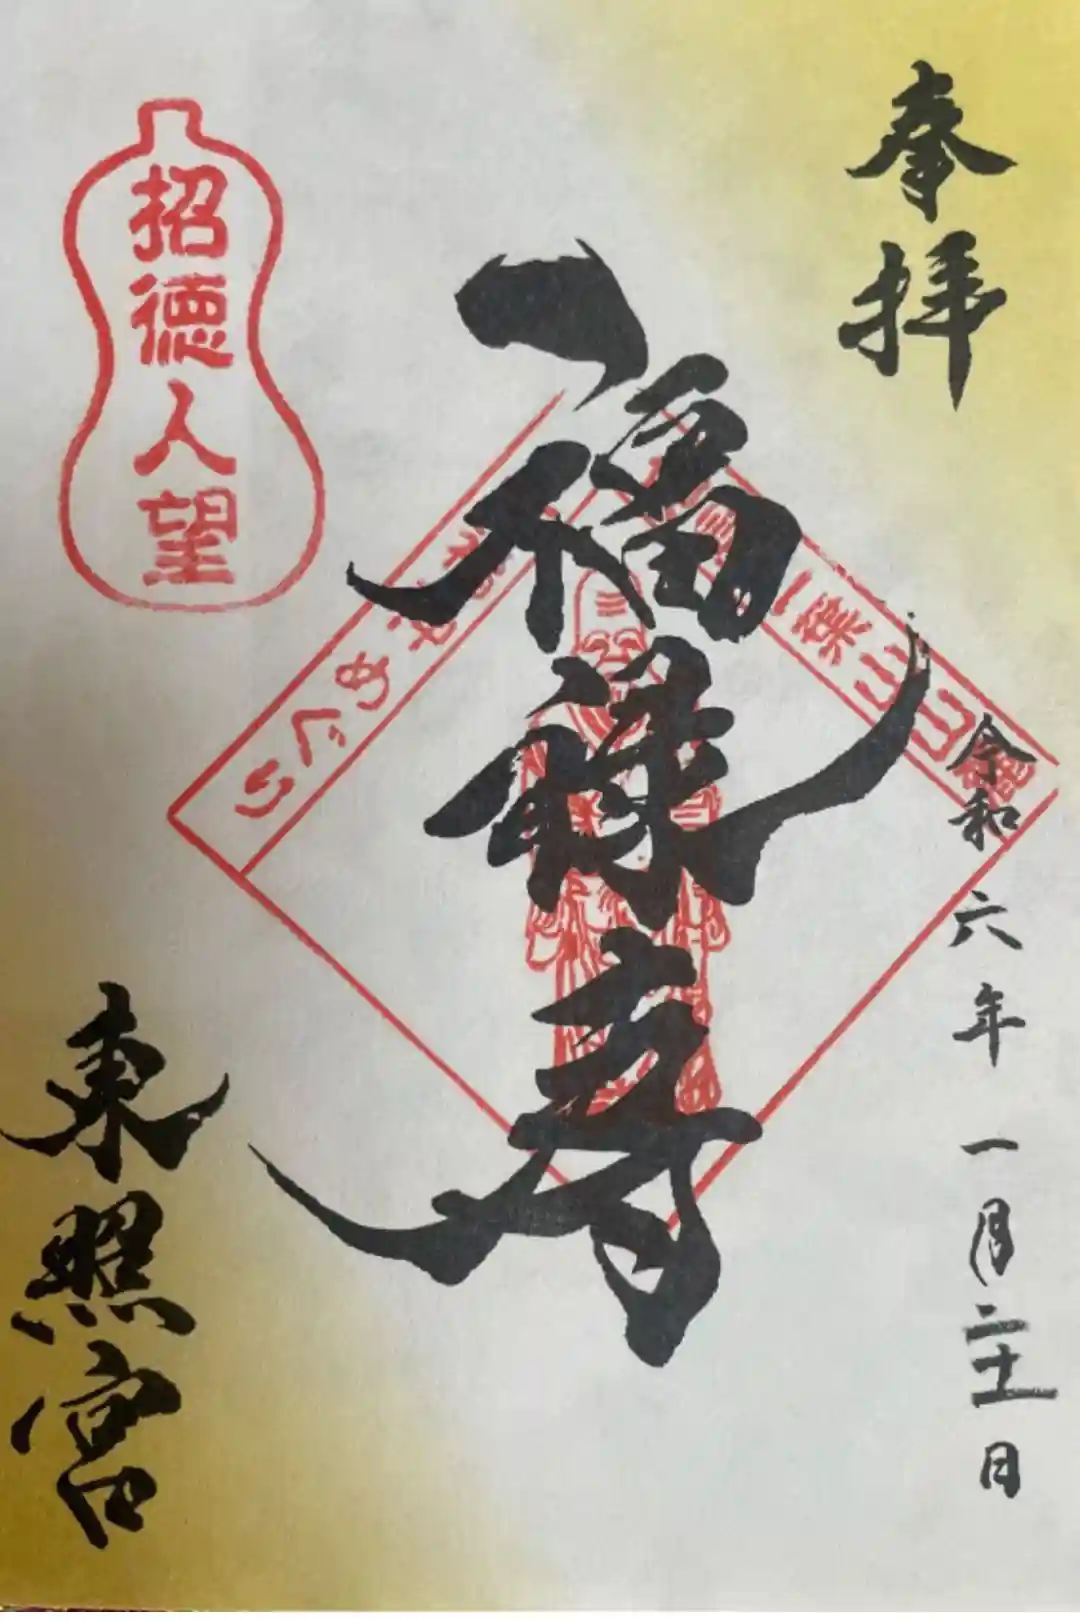 奉拝
令和六年一月二十一日
福禄寿
めぐり
招徳人望
東照宮